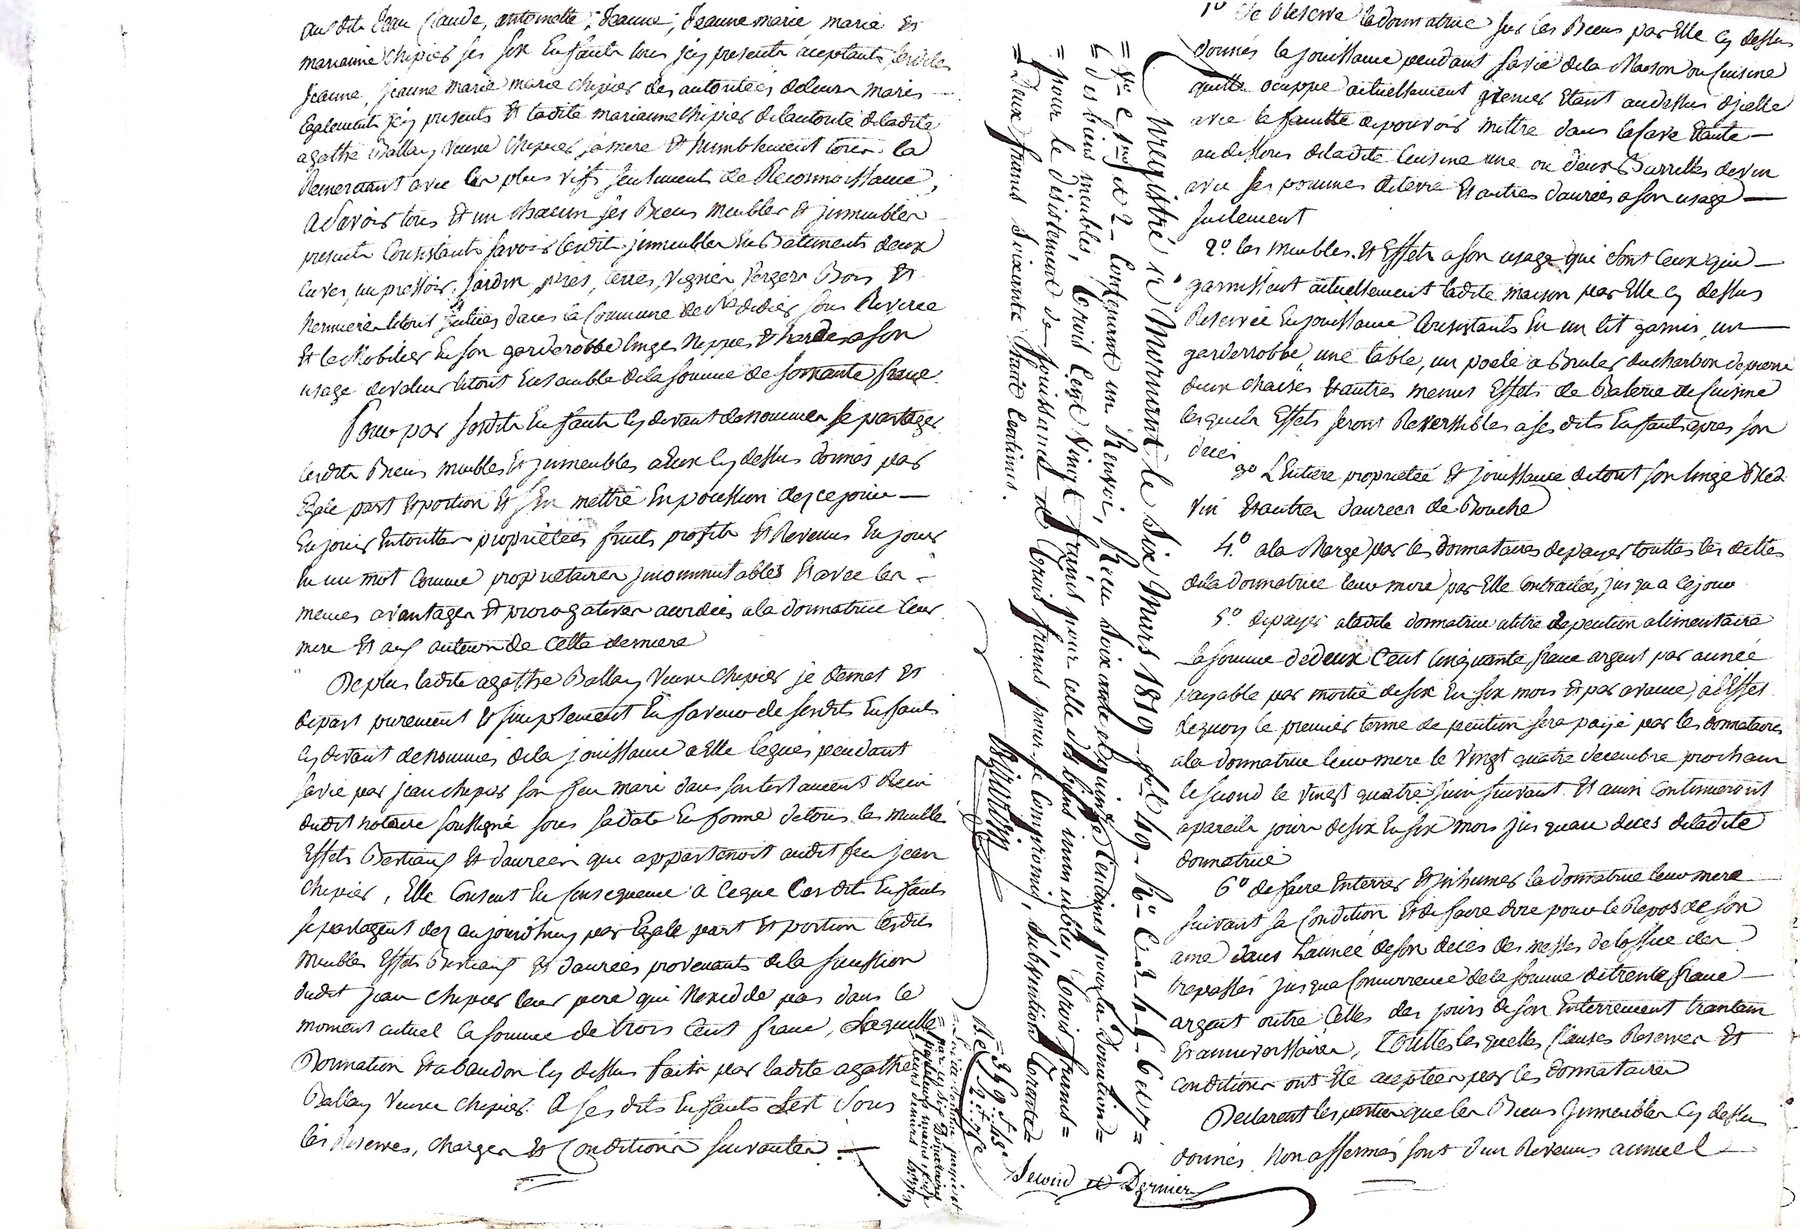 audit Jean Claude, antoinette, Jeanne, Jeanne marie, marie Et
marianne Chipier ses six Enfants tous icy presents aceptants lesdites
Jeanne, jeanne marie marie chipier des autorités de leurs maris
Egalement icy presents Et ladite marianne Chipier de lautorité de ladite
agathe Ballay veuve Chipier sa mere Et humblement tous la
Remerciant avec les plus vifs sentiments de Reconnoissance,
A Savoir tous Et un chacun ses Biens meubles Et jmmeubles
presents Consistants savoir lesdits jmmeubles En Batiments deux
cuves, un pressoir, jardin, prés, terres, vignes, vergers Bois Et
hermieres letout situés dans la Commune de st didier sous Riverie
Et le Mobilier En son garderobbe linges Nippes Et hardes a son
usage de valeur letout Ensemble de la somme de soixante franc
Pour par sesdits Enfants cy devant denommés se partager
lesdits Biens meubles Et jmmeubles a Eux cy dessus donnés par
Egale part Et portion Et s'En mettre En possession des ce jour
En jouir En touttes proprietées fruits profits Et Revenus En jouir
En un mot Comme proprietaires jncommutables Et avec les
memes avantages Et prorogatives acordées a la donnatrice leur
mere Et aux auteurs de Cette derniere
De plus ladite agathe Ballay veuve Chipier se demet Et
depart purement Et simplement En faveur de sesdits Enfants
cy devant denommés de la jouissance a Elle leguée pendant
sa vie par jean chipier son feu mari dans son testament Reçu
dudit notaire soussigné sous sa date En forme de tous les meubles
Effets Bestiaux Et danrées que appartenoit audit feu jean
Chipier, Elle Consent En Consequence a ceque Cesdits Enfants
se partagent des aujourd'huy par Egale part Et portion lesdits
Meubles Effets Bestiaux Et danrées provenants de la succession
dudit jean chipier leur pere qui N'excede pas dans le
moment actuel la somme de trois Cent franc, Laquelle
Donnation Et abandon cy dessus faite par ladite agathe
Ballay veuve chipier A ses dits Enfants L'est Sous
les Reserves, charges Et Conditions suivantes.
Enregistré à Mornant le Six Mars 1819 fol. 49 Ro C. 3 4 5 6 et 7 =
= Vo C. 1re et 2 Contenant un Renvoi, Reçu Soixante quinze Centimes pour la Donation =
des biens meubles, Trois Cent Vingt francs pour celle des biens immeubles, Trois francs =
= pour le desistement de jouissance et Trois francs pour le Compromis, Subvention Trente =
= Deux francs Soixante Huit Centimes.
Second et Dernier
1o Se Reserve la donnatrice sur les Biens par Elle cy dessus
donnés la jouissance pendant sa vie de la Maison ou Cuisine
quelle ocuppe actuellement grenier Etant audessus d'jcelle
avec la faculté de pouvoir mettre dans la Cave Etante
audessous de ladite Cuisine une ou deux Barrilles de vin
avec ses pommes de terre Et autres danrées a son usage
seulement
2o les meubles Et Effets a son usage qui sont Ceux qui
garnissent actuellement ladite maison par Elle cy dessus
Reservée En jouissance Consistants En un lit garnis, un
garderrobbe, une table, un poele a Bruler du charbon de pierre
deux chaises Et autres menus Effets de Baterie de Cuisine
lesquels Effets seront Reversibles a ses dits Enfants apres son
deces
3o L'Entiere proprietée Et jouissance de tout son linge Bled
vin Et autres danrées de Bouche
4o a la Charge par les donnataires de payer touttes les dettes
de la donnatrice leur mere par Elle Contractées jusqu'a ce jour
5o de payer a ladite donnatrice a titre de pention alimentaire
la somme de deux Cent Cinquante franc argent par année
payable par moitié de six En six mois Et par avance, a l'Effet
dequoy le premier terme de pention sera payé par les donnataires
a la donnatrice leur mere le vingt quatre decembre prochain
le second le vingt quatre juin suivant Et ainsi Continueront
a pareils jours de six En six mois jusquau deces de ladite
donnatrice
6o de faire Enterrer Et jnhumer la donnatrice leur mere
suivant sa Condition Et de faire dire pour le Repos de son
ame dans l'année de son deces des messes de loffice des
trepassés jusqua Concurrence de la somme de trente franc
argent outre Celles des jours de son Enterrement trantain
Et anniverssaires, Touttes lesquelles Clauses Reserves Et
Conditions ont Eté aceptées par les donnataires
Declarent les parties que les Biens Jmmeubles cy dessus
donnés Non affermés sont d'un Revenus annuel